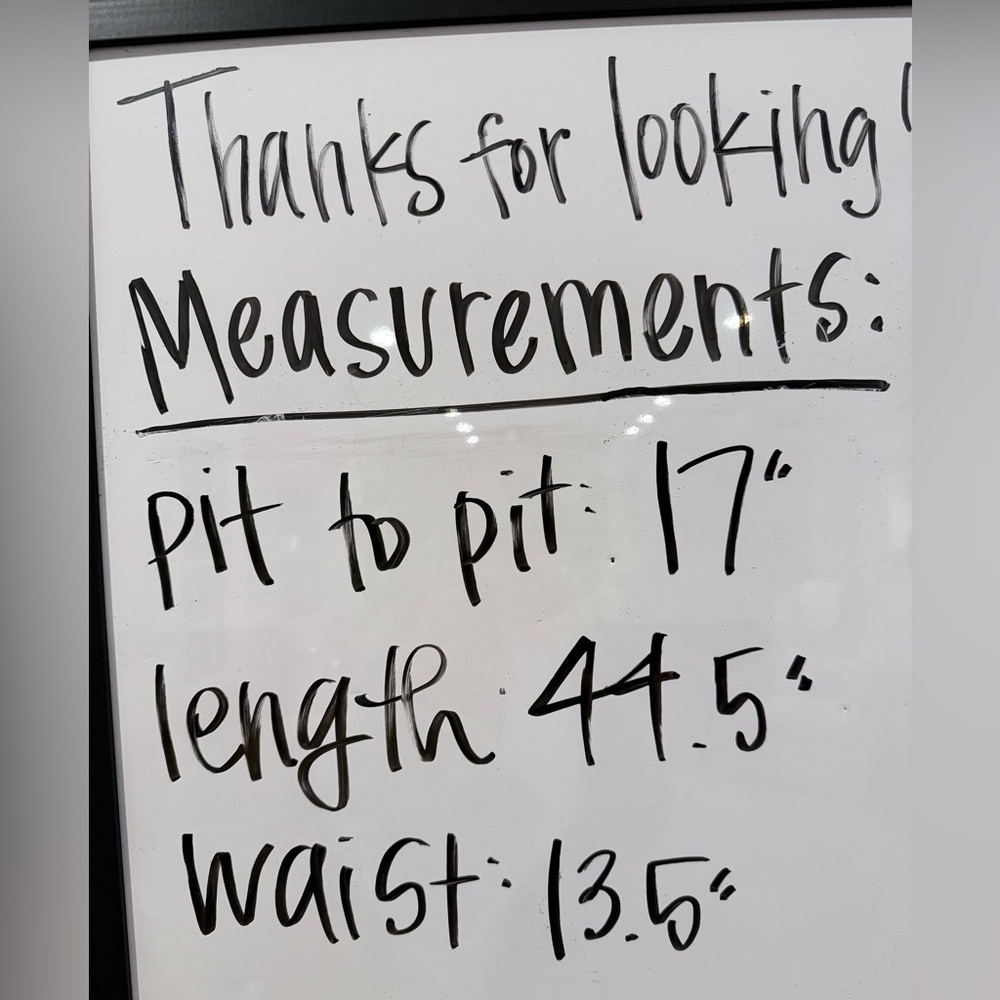 Thanks for looking!
Measurements:
pit to pit: 17"
length: 44.5"
waist: 13.5"